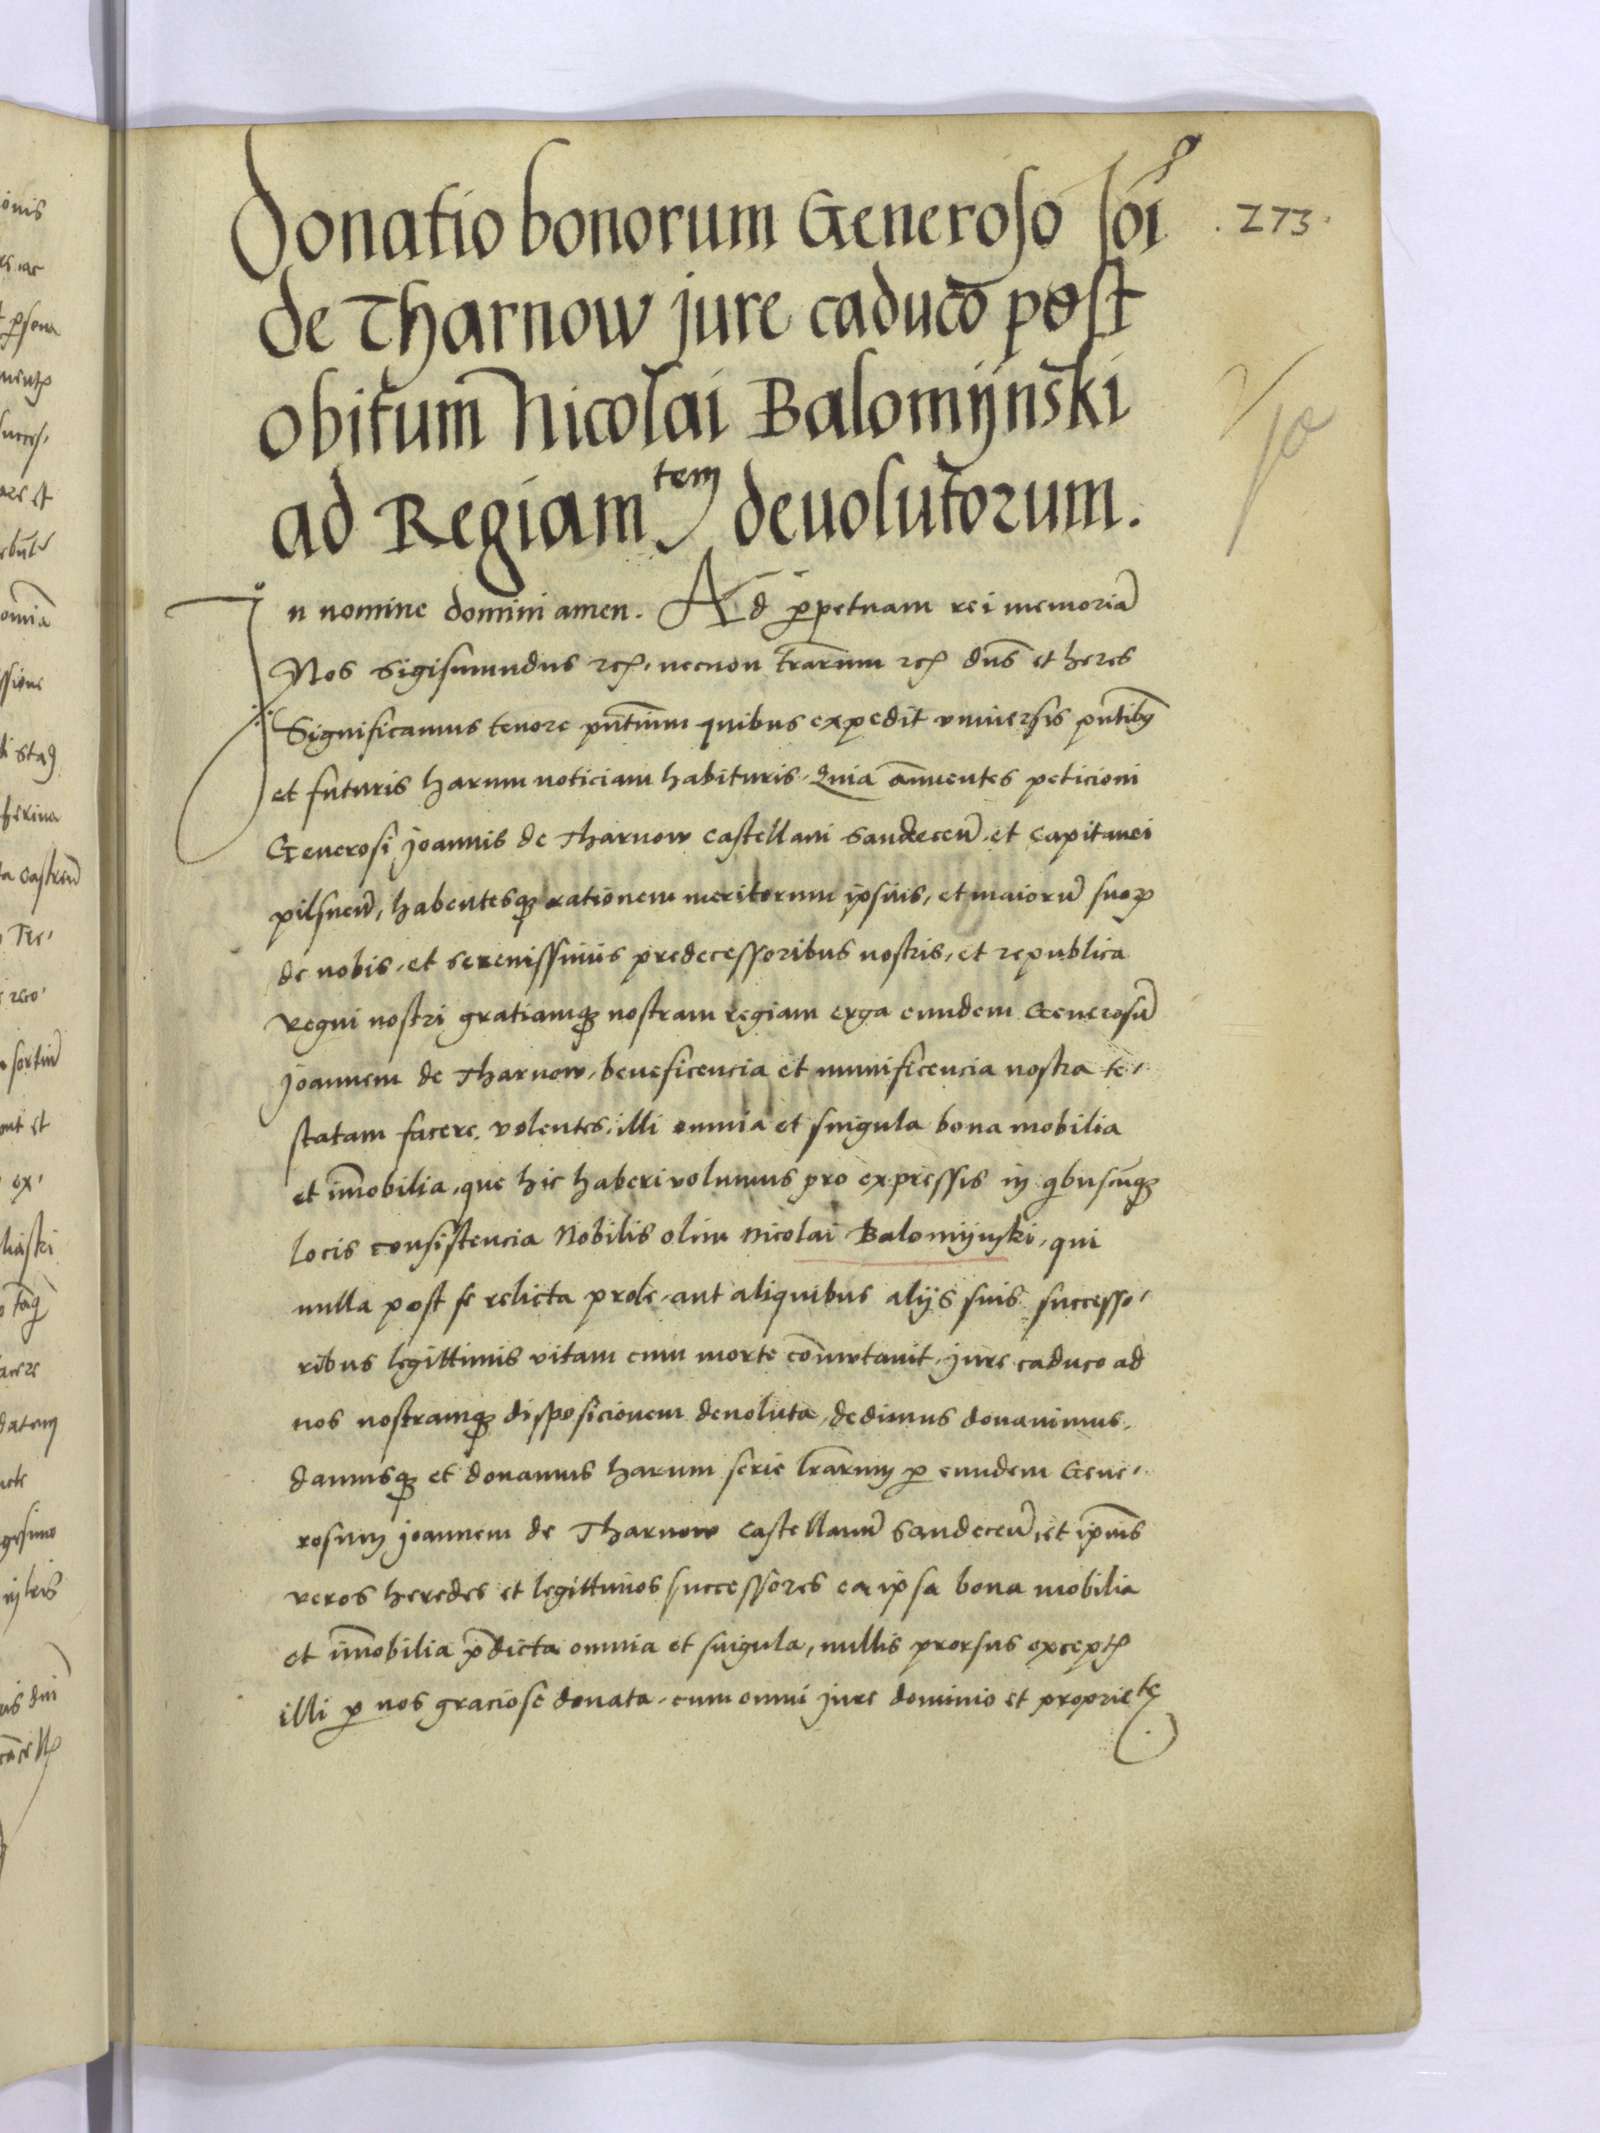 Donatio bonorum Generoso Joī
. 273 .
de Tharnow jure caduco post
obitum Nicolai Balomijnski
ad Regiam tem devolutorum.
In nomine domini amen. Ad ꝑpetuam rei memoriā
Nos Sigismundus ꝛcꝫ. necnon trārum ꝛcꝫ dn̄s et heres
Significamus tenore pn̄tium quibus expedit vniuersis pn̄tibꝫ
et futuris harum noticiam habituris. Quia an̄uentes peticioni
Generosi Joannis de Tharnow castellani Sandeceñ. et Capitanei
pilsneñ, habentesqꝫ rationem meritorum ipsius, et maiorū suoꝝ
de nobis, et serenissimis predecessoribus nostris, et republica
regni nostri gratiamqꝫ nostram regiam erga eundem Generosū
Joannem de Tharnow, beneficencia et munificencia nostra te-
statam facere volentes, illi omnia et singula bona mobilia
et im̄obilia, que hic haberi volumus pro expressis in qͥbuscūqꝫ
locis consistencia Nobilis olim Nicolai Balomijnski, qui
nulla post se relicta prole, aut aliquibus alijs suis successo-
ribus legittimis vitam cum morte com̄utauit, jure caduco ad
nos nostramqꝫ disposicionem deuoluta, dedimus donauimus,
damusqꝫ et donamus harum serie lr̄arum ꝑ eundem Gene-
rosum Joannem de Tharnow castellanū Sandeceñ, et ip̄ius
veros heredes et legittimos successores ea ipsa bona mobilia
et im̄obilia p̄dicta omnia et singula, nullis prorsus exceptꝭ
illi ꝑ nos graciose donata, cum omni jure dominio et propriete